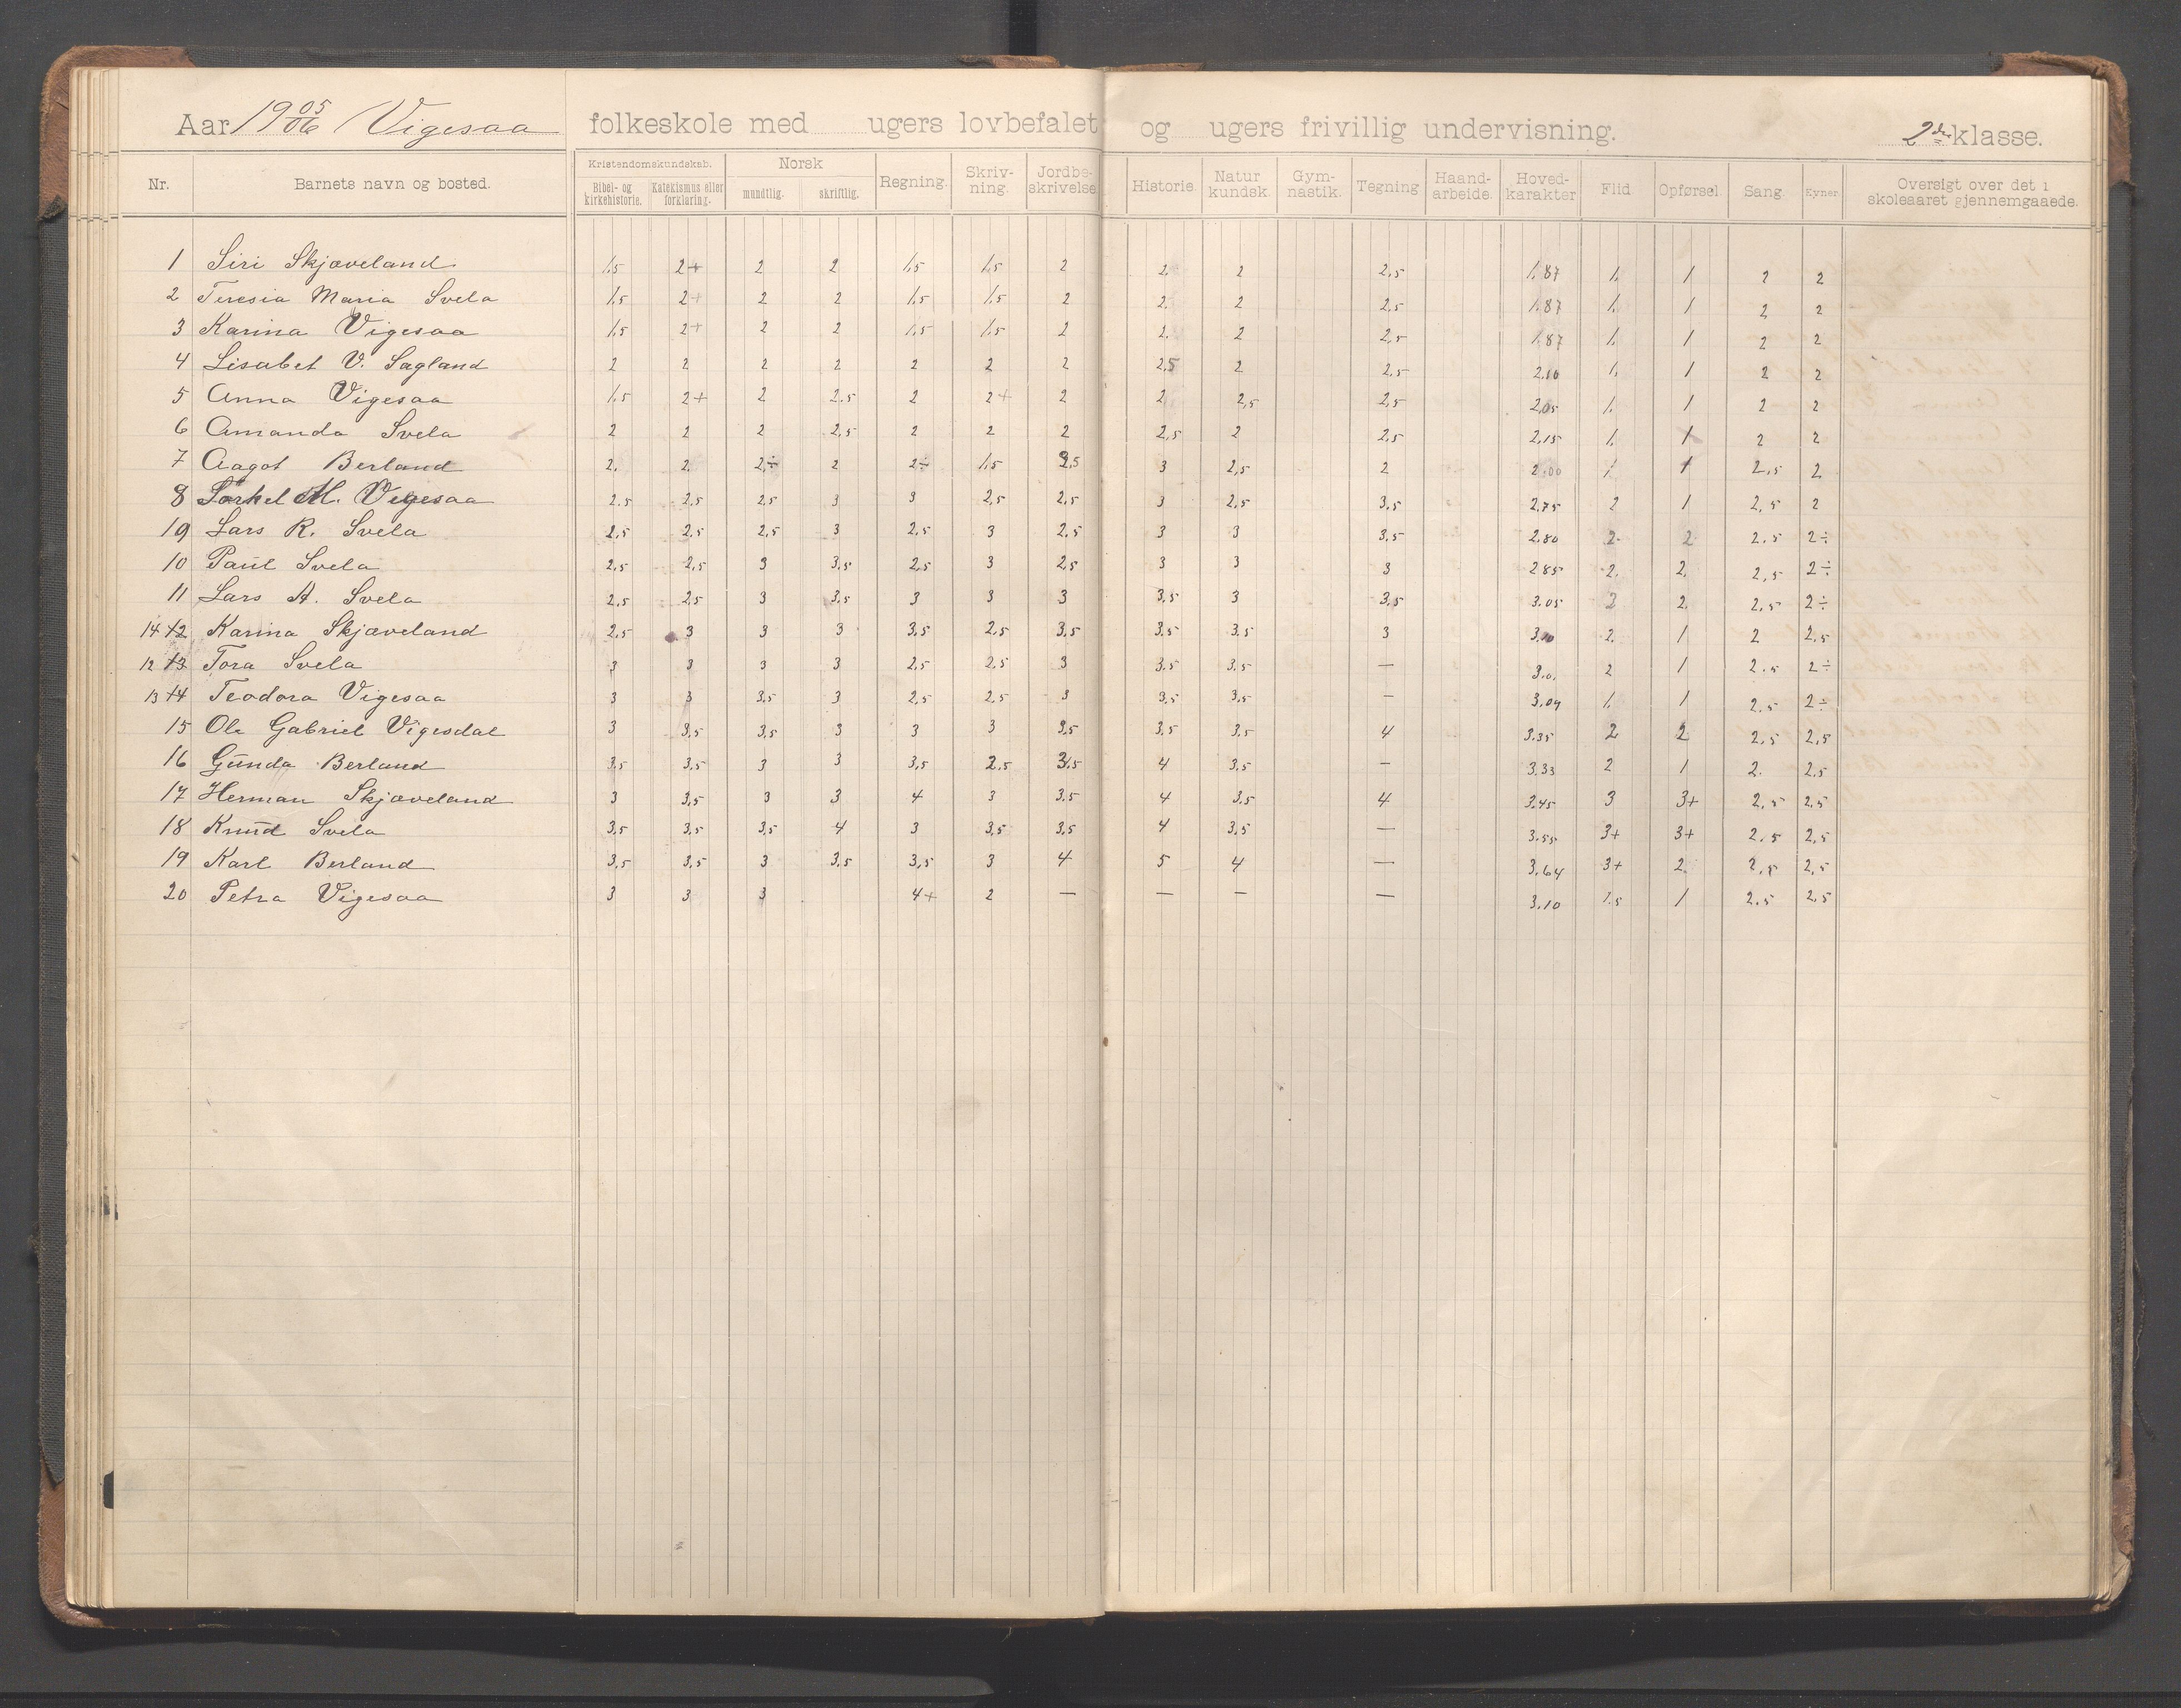 Aar 1905/06 Vigesaa folkeskole med ugers lovbefalet og ugers frivillig undervisning. 2den klasse.
Nr. Barnets navn og bosted. Kristendomskundskab. Bibel- og kirkehistorie. Katekismus eller forklaring. Norsk mundtlig. skriftlig. Regning. Skriv-ning. Jordbe-skrivelse. Historie. Natur kundsk. Gym-nastik. Tegning Haand-arbeide. Hoved-karakter Flid. Opførsel. Sang. Evner Oversigt over det i skoleaaret gjennemgaaede.
1 Siri Skjæveland 1.5 2+ 2 2 1.5 1.5 2 2. 2 2,5 1.87 1. 1 2 2
2 Teresia Maria Svela 1.5 2+ 2 2 1.5 1.5 2 2. 2 2,5 1.87 1. 1 2 2
3 Karina Vigesaa 1.5 2+ 2 2 1.5 1.5 2 2. 2 2,5 1.87 1. 1 2 2
4 Lisabet V. Sagland 2 2 2 2 2 2 2 2,5 2 2,5 2.10 1. 1 2 2
5 Anna Vigesaa 1.5 2+ 2 2.5 2 2+ 2 2 2,5 2,5 2,05 1. 1 2 2
6 Amanda Svela 2 2 2 2,5 2 2 2 2,5 2 2,5 2,15 1. 1 2 2
7 Aagot Berland 2. 2. 2÷ 2 2÷ 1.5 2,5 3 2,5 2 2.00 1 1 2,5 2
8 Torkel M. Vigesaa 2.5 2,5 2,5 3 3 2,5 2,5 3 2,5 3,5 2,75 2 1 2,5 2
19 Lars R. Svela 2,5 2,5 2,5 3 2,5 3 2,5 3 3 3,5 2.80 2. 2 2.5 2÷
10 Paul Svela 2,5 2,5 3 3,5 2,5 3 2,5 3 3 3 2.85 2. 2. 2,5 2÷
11 Lars A. Svela 2,5 2,5 3 3,5 3 3 3 3,5 3 3,5 3.05 2 2. 2,5 2÷
14 12 Karina Skjæveland 2,5 3 3 3 3,5 2,5 3,5 3,5 3,5 3 3,10 2. 1 2 2,5
12 13 Tora Svela 3 3 3 3 2,5 2,5 3 3,5 3,5 — 3.0. 2 1 2.5 2÷
13 14 Teodora Vigesaa 3 3 3,5 3 2,5 2,5 3 3,5 3,5 — 3,09 1. 1 2.5 2÷
15 Ole Gabriel Vigesdal 3 3,5 3,5 3 3 3 3,5 3,5 3,5 4 3.35 2 2 2.5 2,5
16 Gunda Berland 3,5 3,5 3 3 3,5 2.5 3.5 4 3,5 — 3,33 2 1 2. 2,5
17 Herman Skjæveland 3 3,5 3 3 4 3 3.5 4 3,5 4 3.45 3 3+ 2,5 2,5
18 Knud Svela 3,5 3,5 3,5 4 3 3,5 3,5 4 3,5 — 3.55 3+ 3+ 2.5 2,5
19 Karl Berland 3,5 3,5 3 3,5 3,5 3 4 5 4 — 3.64 3+ 2. 2,5 2,5
20 Petra Vigesaa 3 3 3 4+ 2 — — — — 3.10 1.5 1 2.5 2.5